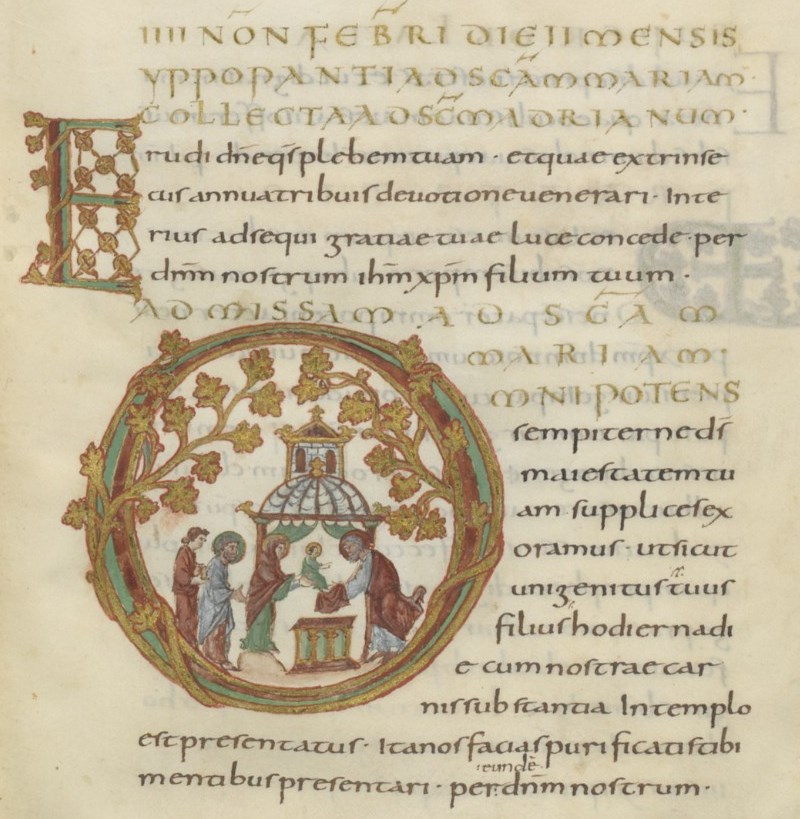 IIII NON FEBRI DIE II MENSIS
YPPOPANTI AD SCAM MARIAM·
COLLECTA AD SCM ADRIANUM·
Erudi dne qs plebem tuam · et quae extrinse
cus annua tribuis devotione venerari · Inte
rius adsequi gratiae tuae luce concede · per
dmm nostrum ihm xpm filium tuum ·
AD MISSAM AD SCAM
MARIAM·
OMNIPOTENS
sempiterne ds
maiestatem tu
am supplices ex
oramus · ut sicut
unigenitus tuus
filius hodierna di
e cum nostrae car
nis substantia In templo
est presentatus · Ita nos facias purificatis tibi
mentibus presentari · per dnm nostrum ·